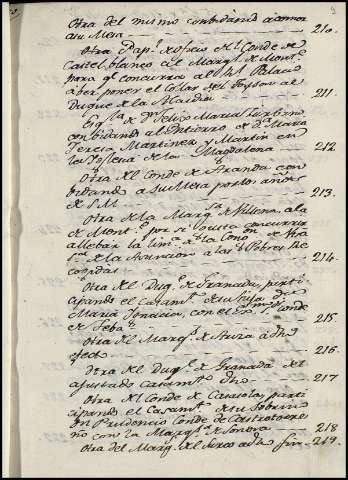 Otra del mismo conbidando a comer
a su Mesa — 210.
Otra Pap.l de oficio del Conde de
Castelblanco al Marq.s de Mont.e
para q.e concurra al R.l Palacio
a ber poner el Collar del Toyson al
Duque de la
Esq.la de D.n Felix Maria
conbidando al Entierro de D.a Maria
Teresa Martinez y Martin en
la Yglesia de la Magdalena — 212
Otra del Conde de Aranda con
bidando a su Mesa por los años
de S.M — 213.
Otra de la Marq.sa de Villena, a la
de Mont.e por si gusta concurrir
a llebar la
de la Asuncion a las Pobres Re
cogidas — 214.
Otra del Duq.e de Granada, parti
cipando el Casam.to de su Hija D.a
Maria Ignacia, con el Conde
de — 215
Otra del Marq.s de Ariza a dho
efecto — 216.
Otra del Duq.e de Granada del
ajustado casam.to dho — 217
Otra del Conde de parti
cipando el Casam.to de su Sobrino
D.n Prudencio Conde de
no con la Marq.sa de Sonora — 218
Otra del Marq.s al fin — 219.